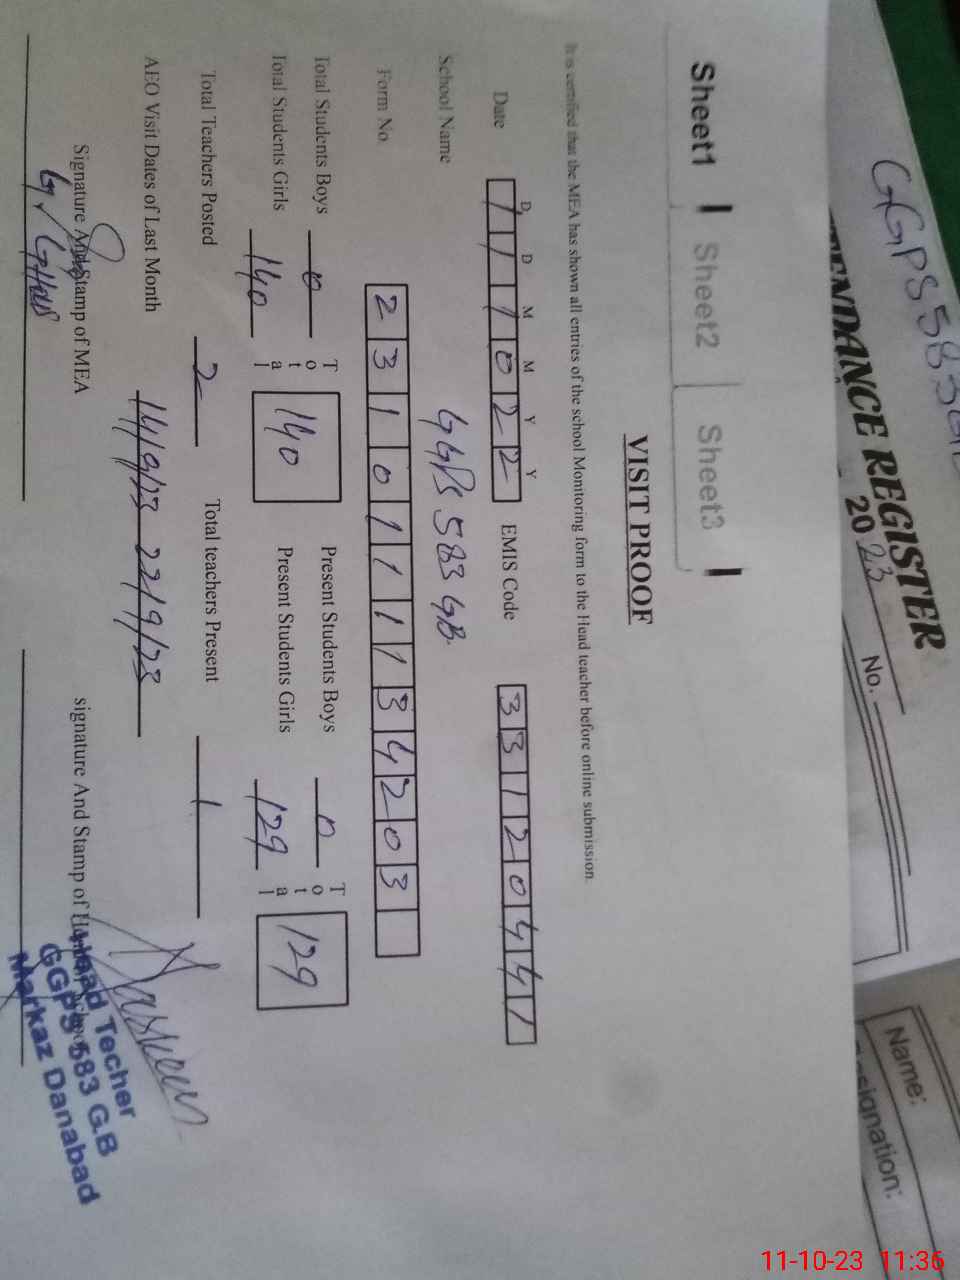 GGPS 583 GB
ATTENDANCE REGISTER
20 23 No.
Name:
Designation:
Sheet1 Sheet2 Sheet3
VISIT PROOF
It is certified that the MEA has shown all entries of the school Monitoring form to the Head teacher before online submission.
D D M M Y Y
Date 1 1 1 0 2 2 EMIS Code 3 3 1 2 0 4 4 1
School Name GGPS 583 GB
Form No. 2 3 1 0 1 1 1 1 3 4 2 0 3
Total Students Boys 0 Total 140 Present Students Boys 0 Total 129
Total Students Girls 140 Present Students Girls 129
Total Teachers Posted 2 Total teachers Present 1
AEO Visit Dates of Last Month 14/9/23 22/9/23
Signature And Stamp of MEA signature And Stamp of
Head Techer
GGPS 583 G.B
Markaz Danabad
11-10-23 11:36